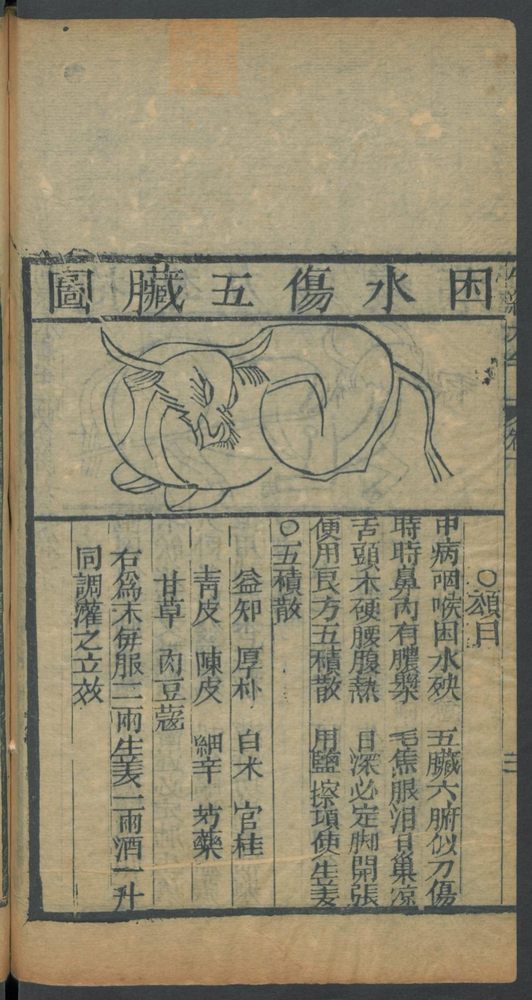 困水傷五臟圖
○頌曰
牛病咽喉困水殃 五臟六腑似刀傷
時時鼻內有膿 毛焦眼泪
舌頭木硬腰腹熱 日深必定脚開張
便用良方五積散 用鹽擦項使生姜
○五積散
益知 厚朴 白术 官桂
青皮 陳皮 細辛 芍藥
甘草 肉豆蔻
右爲末每服二兩生姜二兩酒一升
同調灌之立效